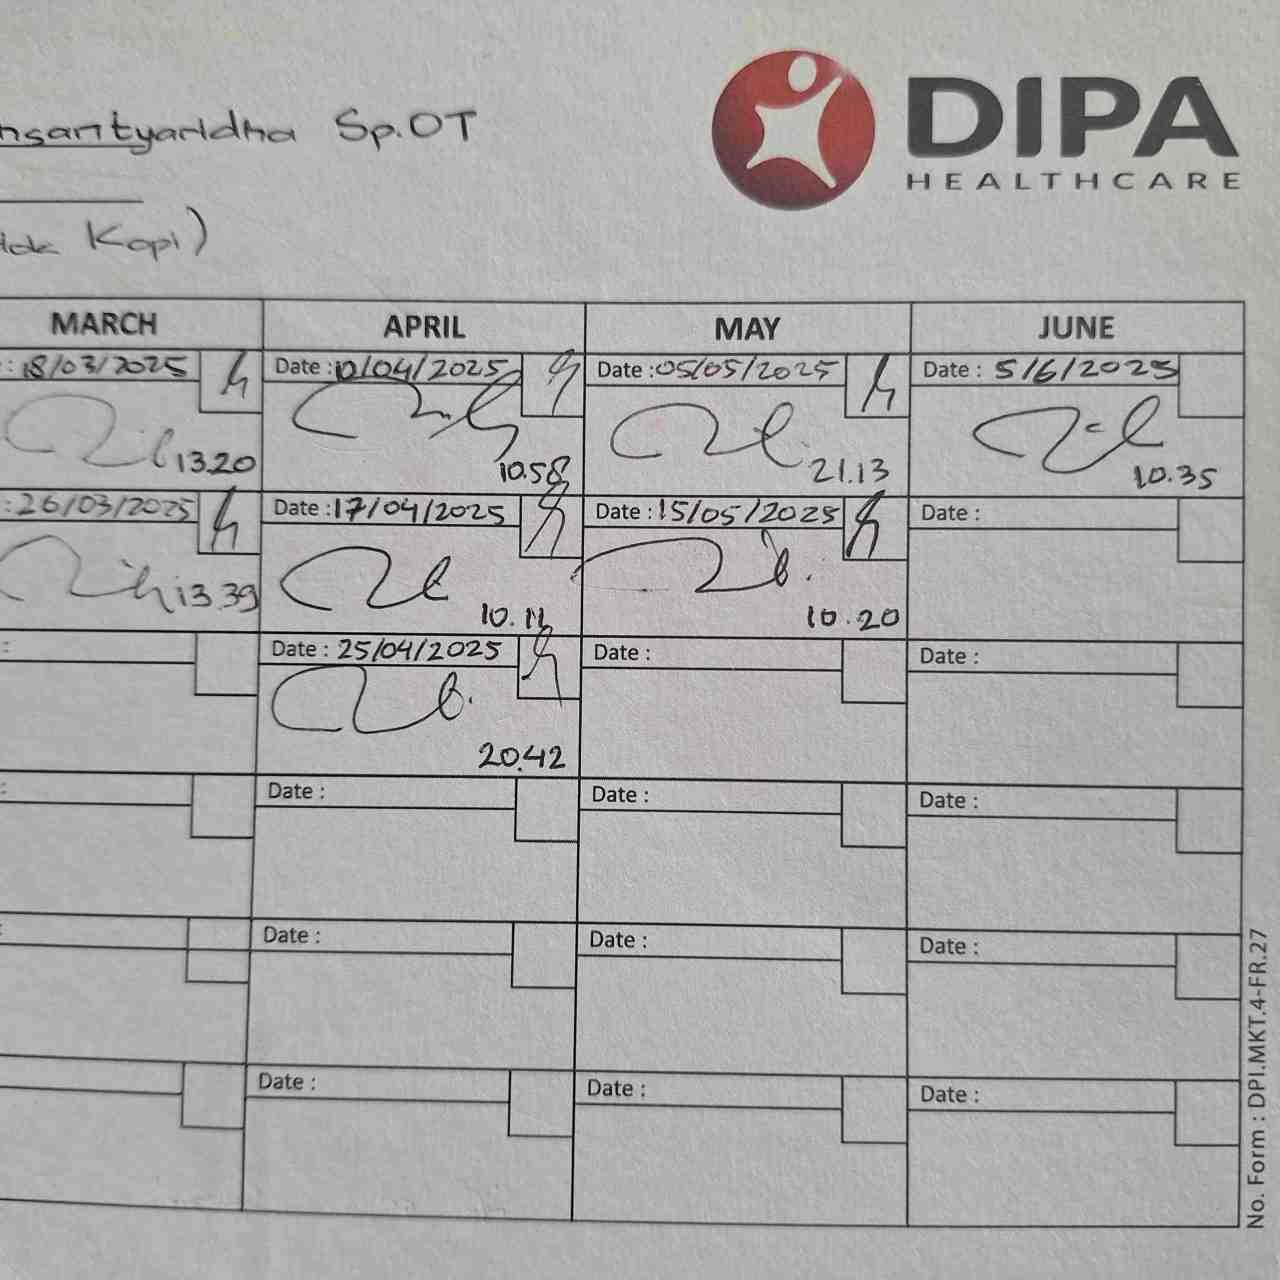 DIPA
HEALTHCARE
Sp.OT
Kopi)
MARCH APRIL MAY JUNE
: 18/03/2025 Date : 10/04/2025 Date : 05/05/2025 Date : 5/6/2025
13.20 10.58 21.13 10.35
: 26/03/2025 Date : 17/04/2025 Date : 15/05/2025 Date :
13.39 10.11 10.20
: Date : 25/04/2025 Date : Date :
20.42
: Date : Date : Date :
: Date : Date : Date :
Date : Date : Date :
No. Form : DPI.MKT.4-FR.27